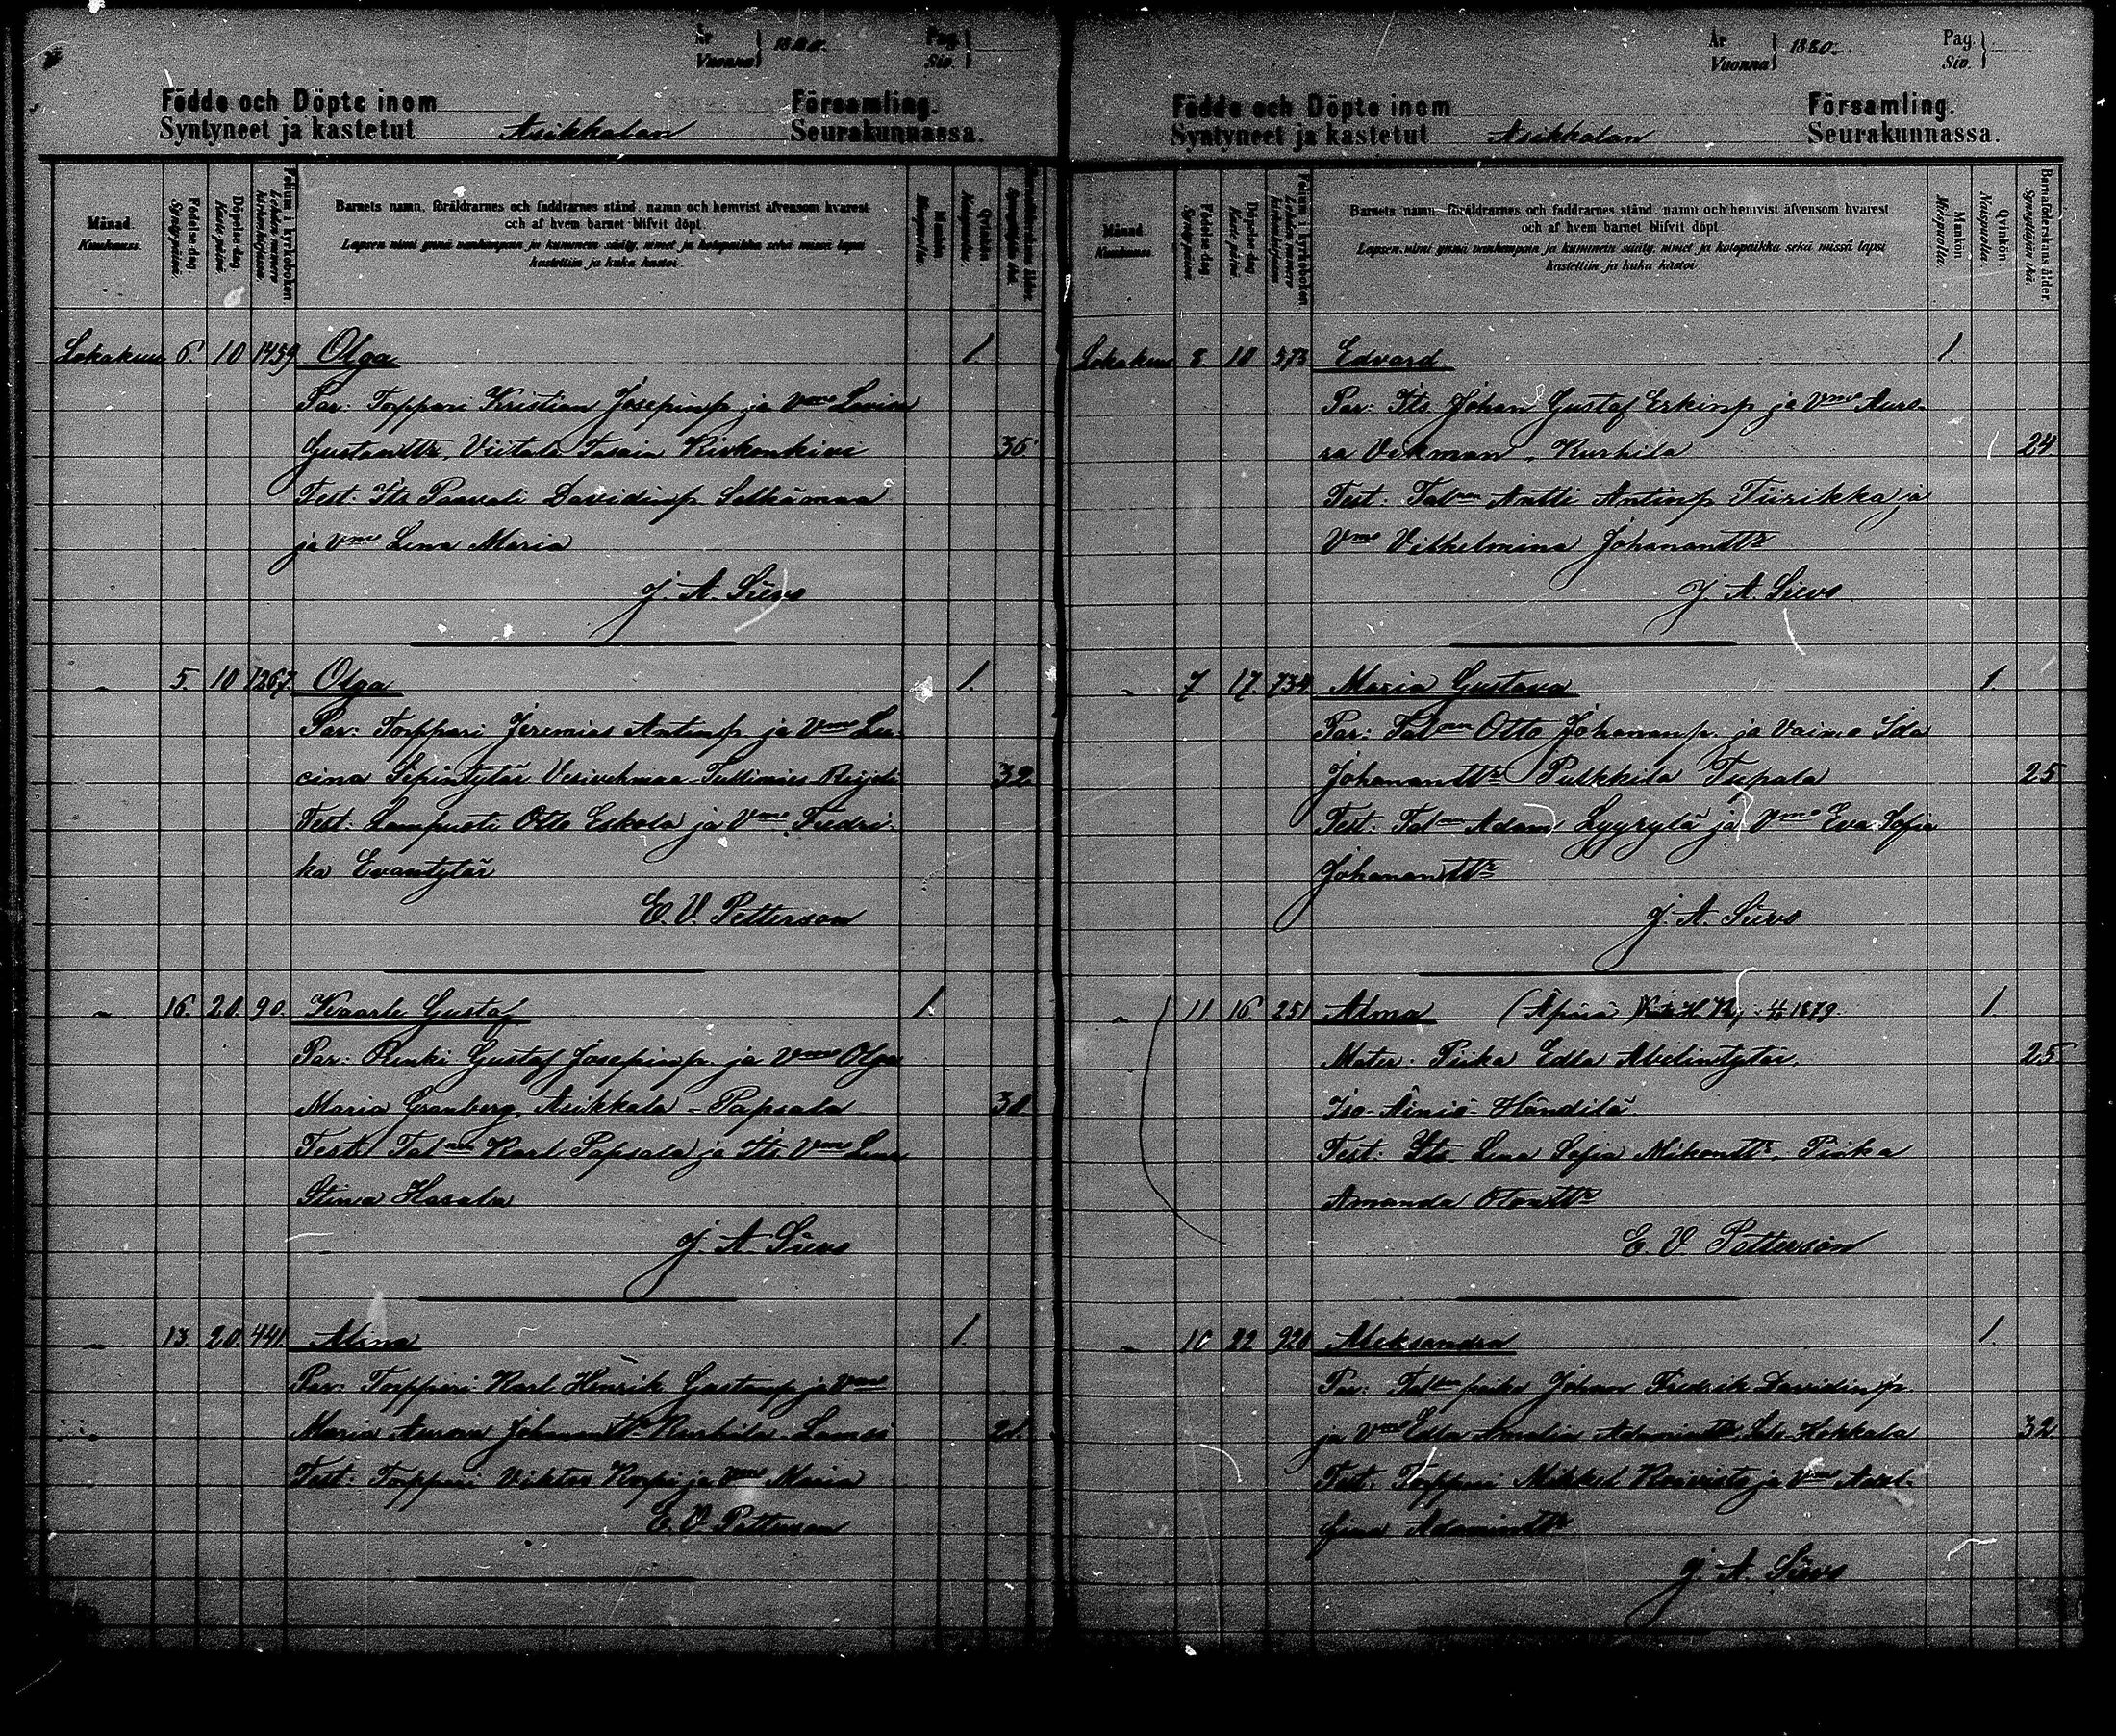 År
Vuonna } 1880.
Pag.
Siv. }
Födde och Döpte inom Församling.
Syntyneet ja kastetut Asikkalan Seurakunnassa.
Månad.
Kuukausi.
Födelse dag.
Syntymä päivä.
Döpelse dag.
Kaste päivä.
Folium i kyrkoboken.
Lehden numero kirkonkirjassa.
Barnets namn, föräldrarnes och faddrarnes stånd, namn och hemvist äfvensom hvarest
och af hvem barnet blifvit döpt.
Lapsen nimi ynnä vanhempain ja kummein sääty, nimet ja kotopaikka sekä missä lapsi
kastettiin ja kuka kastoi.
Mankön
Miespuolia.
Qvinkön
Naispuolia.
Barnaföderskans ålder.
Synnyttäjän ikä.
Lokakuu 6. 10 1459 Olga 1.
Par: Torppari Kristian Josepinp. ja Vmo Lovisa
Gustantr, Viitala 36
Test: Its Paavali Davidinp. Salkämaa
ja Vmo Lena Maria
J. A. Sievo
„ 5. 10 1267. Olga 1.
Par: Torppari Jeremias Antinp. ja Vmo Lu-
cina Vesivehmaa 32
Test: Lampuoti Otto Eskola ja Vmo Fredri-
ka Evantytär
E. V. Petterson
„ 16. 20. 90. Kaarle Gustaf 1.
Par: Renki Gustaf Josepinp. ja Vmo Olga
Maria Granberg, Asikkala - Papsala
Test: Talnn Karl Papsala ja Its Vmo Lena
Stina Hasala
J. A. Sievo
„ 13. 20. 441. Alina 1.
Par: Torppari Karl Henrik Gustanp. ja Vmo
Maria Aurora Johanantr Kurhila
Test: Torppari Viktor Korpi ja Vmo Maria
E. V. Petterson
År
Vuonna } 1880.
Pag
Siv. }
Födde och Döpte inom Församling.
Syntyneet ja kastetut Asikkalan Seurakunnassa.
Månad.
Kuukausi.
Födelse dag.
Syntymä päivä.
Döpelse dag.
Kaste päivä.
Folium i kyrkoboken.
Lehden numero kirkonkirjassa.
Barnets namn, föräldrarnes och faddrarnes stånd, namn och hemvist äfvensom hvarest
och af hvem barnet blifvit döpt.
Lapsen nimi ynnä vanhempain ja kummein sääty, nimet ja kotopaikka sekä missä lapsi
kastettiin ja kuka kastoi.
Mankön
Miespuolia.
Qvinkön
Naispuolia.
Barnaföderskans ålder.
Synnyttäjän ikä.
Lokakuu 8. 10 573 Edvard 1.
Par: Its Johan Gustaf Erkinp. ja Vmo Auro-
ra Vekman, Kurhila 24
Test: Talnn Antti Antinp. Tiirikka ja
Vmo Vilhelmina Johanantr
J. A. Sievo
„ 7 17. 734 Maria Gustava 1.
Par: Talnn Otto Johananp. ja Vaimo Ida
Johanantr Pulkkila Tupala 25
Test: Talnn Adam Lyyrylä ja Vmo Eva Sofia
Johanantr
J. A. Sievo
„ 11. 16. 251 Alma (Äpärä) 1879. 1
Mater: Piika Edla Abelintytär, 25
Iso-Äiniö - Händilä
Test: Its. Lena Sofia Mikontr, Piika
Amanda Otontr
E. V. Petterson
„ 22 Aleksandra 1.
Par: Talnn poika Johan Fredrik Davidinp.
ja Vmo Edla Amalia Hokkala 32
Test: Torppari Mikkel Koivisto ja Vmo
Adamintr
J. A. Sievo